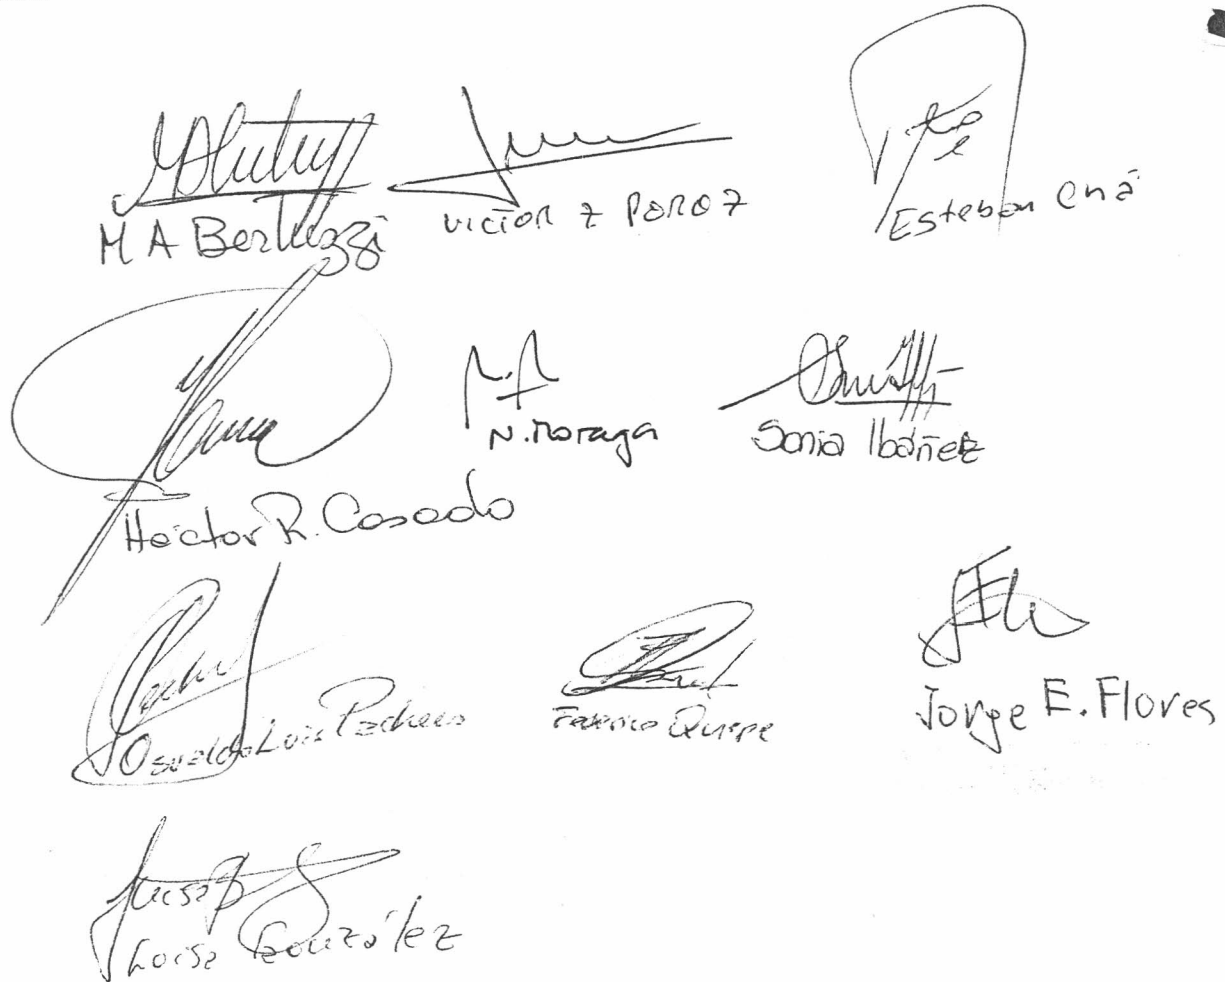 M A Bertuzzi
VICTOR Z POROZ
Esteban Chá
Héctor R. Casado
N. Moraga
Sonia Ibáñez
Osvaldo Luis Pacheco
Quispe
Jorge E. Flores
Luisa González